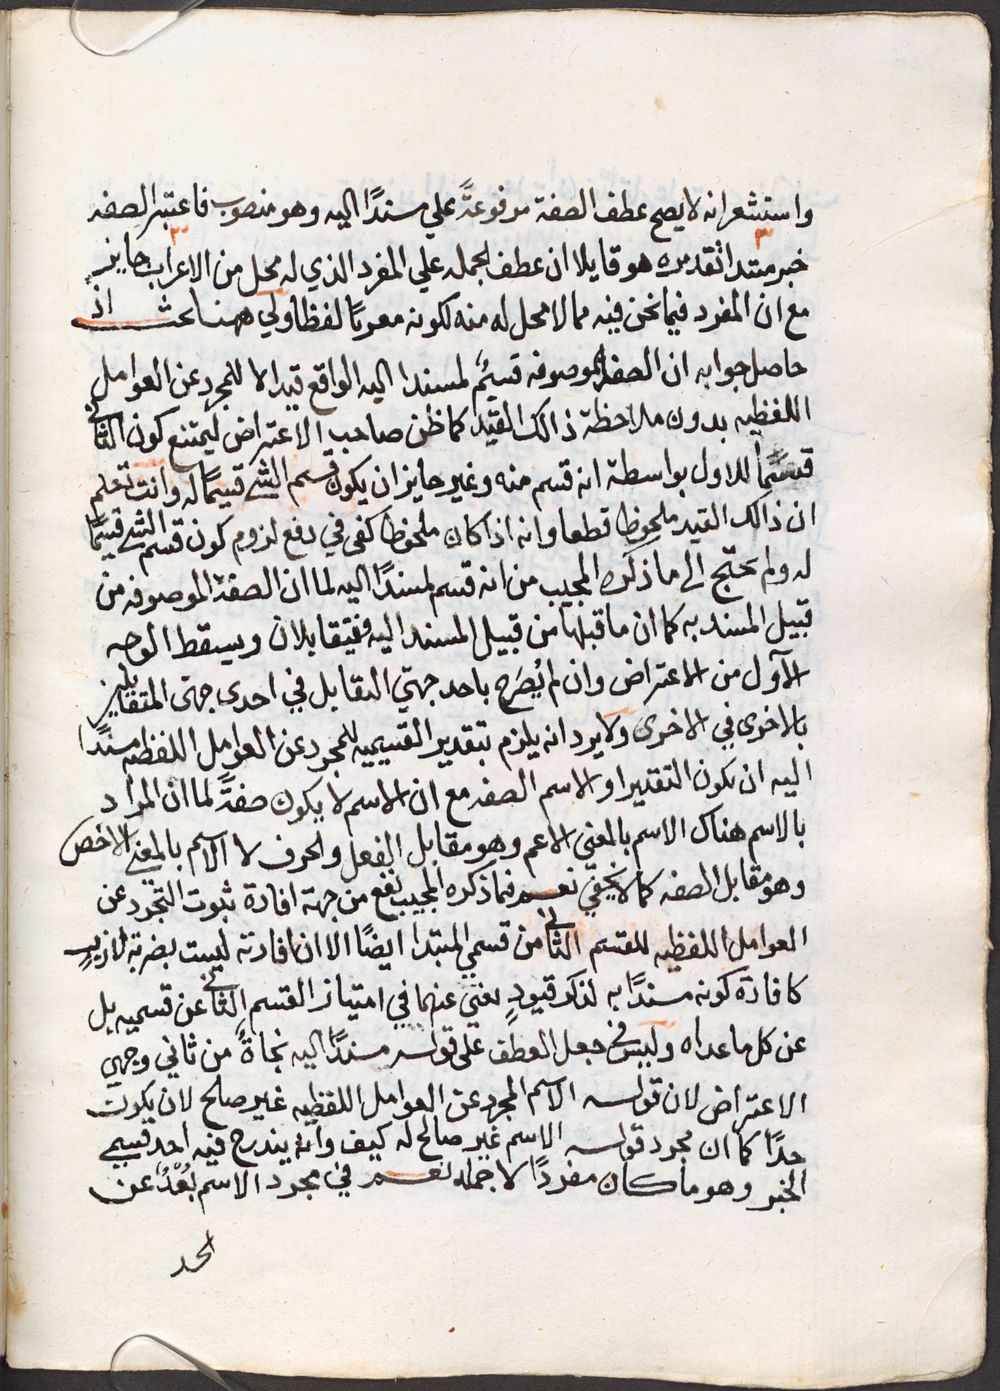 واستشعر انه لا يصح عطف الصفة مرفوعةً علي مسندًا اليه وهو منصوب فاعتبر الصفه
خبر مبتدا تقديره هو قايلا ان عطف الجمله علي المفرد الذي له محل من الاعراب جايز
مع ان المفرد فيما نحن فيه مما لا محل له منه لكونه معربًا لفظا ولي ههنا بحث اذ
حاصل جوابه ان الصفة الموصوفه قسيمٌ لمسندا اليه الواقع قيدا لا للمجرد عن العوامل
اللفظيه بدون ملاحظة ذالك القيد كما ظن صاحب الاعتراض ليمتنع كون الثاني
قسيمًا للاول بواسطة انه قسم منه وغير جايز ان يكون قسم الشي قسيمًا له وانت تعلم
ان ذالك القيد ملحوظا قطعا وانه اذا كان ملحوظا كفي في دفع لزوم كون قسم الشي قسيمًا
له ولم يحتج الي ما ذكره المجيب من انه قسم لمسندًا اليه لما ان الصفة الموصوفه من
قبيل المسند به كما ان ما قبلها من قبيل المسند اليه فيتقابلان ويسقط الوجه
الاول من الاعتراض وان لم يُصَرح باحد جهتي التقابل في احدي جهتي المتقابلين
بالاخري في الاخري ولا يرد انه يلزم بتقدير القسيميه للمجرد عن العوامل اللفظيه مسندًا
اليه ان يكون التقدير او الاسم الصفه مع ان الاسم لا يكون صفةً لما ان المراد
بالاسم هناك الاسم بالمعني الاعم وهو مقابل الفعل والحرف لا الاسم بالمعني الاخص
وهو مقابل الصفه كما لا يخفي نعم فما ذكره المجيب نفع من جهة افادة ثبوت التجرد عن
العوامل اللفظيه للقسم الثاني من قسمي المبتدا ايضًا الا ان افادته ليست بضربة لازبٍ
كافادة كونه مسندًا به لذكر قيودٍ تغني عنها في امتياز القسم الثاني عن قسميه بل
عن كل ما عداه وليس في جعل العطف علي قوله مسندًا اليه نجاةٌ من ثاني وجهي
الاعتراض لان قوله الاسم المجرد عن العوامل اللفظيه غير صالح لان يكون
حدًا كما ان مجرد قوله الاسم غير صالح له كيف وانه يندرج فيه احد قسمي
الخبر وهو ما كان مفردًا لا جمله نعم في مجرد الاسم بُعْدٌ عن
الحد